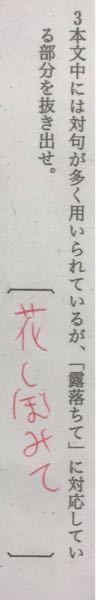 3本文中には対句が多く用いられているが、「露落ちて」に対応してい
る部分を抜き出せ。
〔花しぼみて〕